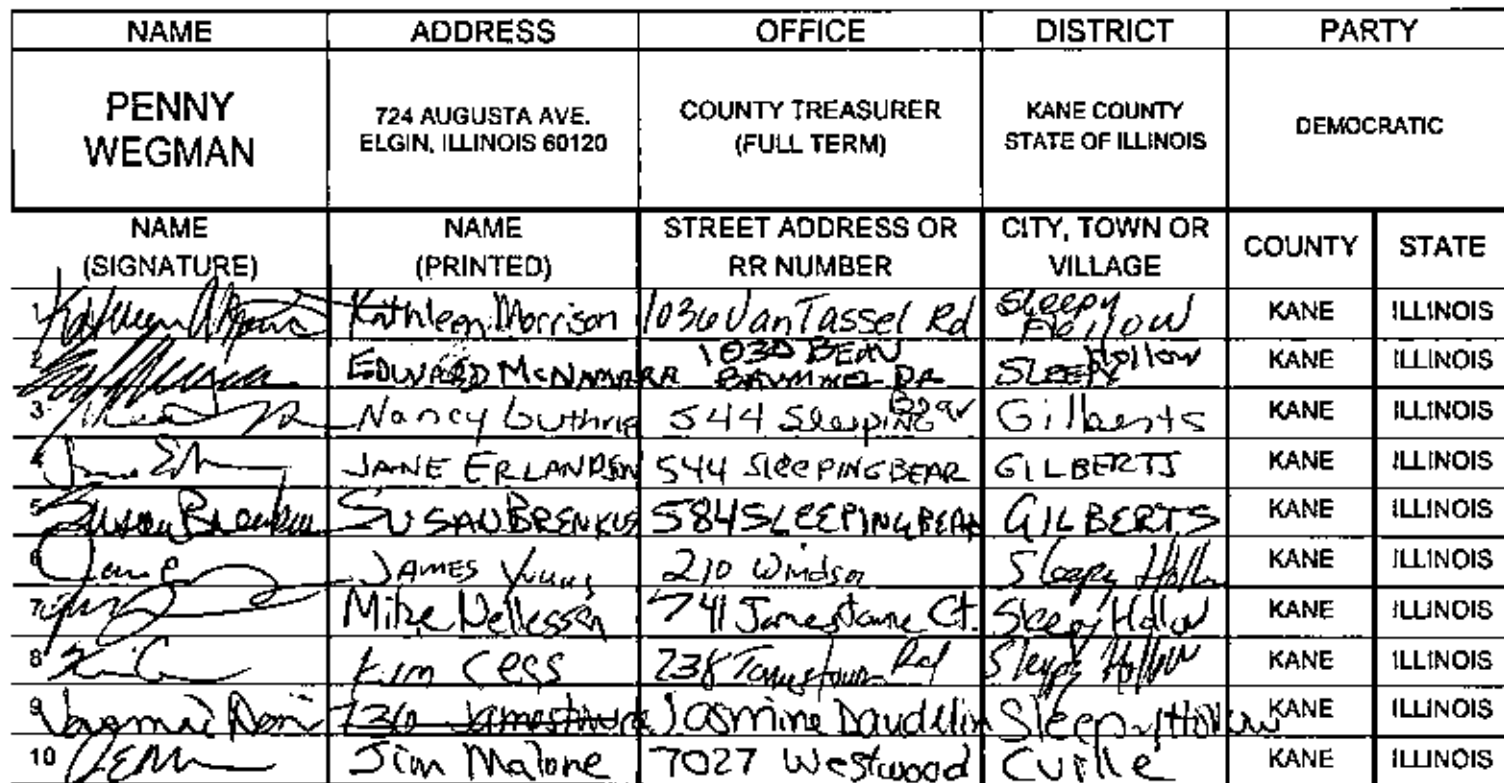 NAME ADDRESS OFFICE DISTRICT PARTY
PENNY WEGMAN 724 AUGUSTA AVE. ELGIN, ILLINOIS 60120 COUNTY TREASURER (FULL TERM) KANE COUNTY STATE OF ILLINOIS DEMOCRATIC
NAME (SIGNATURE) NAME (PRINTED) STREET ADDRESS OR RR NUMBER CITY, TOWN OR VILLAGE COUNTY STATE
1 Kathleen Morrison 1036 Van Tassel Rd Sleepy Hollow KANE ILLINOIS
2 EDWARD McNAMARA 1030 BRUMMEL DR SLEEPY Hollow KANE ILLINOIS
3 Nancy Guthrie 544 Sleeping Bear Gilberts KANE ILLINOIS
4 JANE ERLANDSN 544 SleePING BEAR GILBERTS KANE ILLINOIS
5 SUSAN BRENKUS 584 SLEEPING BEAR GILBERTS KANE ILLINOIS
6 JAMES Young 210 Windsor Sleepy Hollow KANE ILLINOIS
7 Mike Nellessen 741 Jamestowne Ct. Sleepy Hollow KANE ILLINOIS
8 Kim Cess 738 Rd Sleepy Hollow KANE ILLINOIS
9 736 Jamestowne Jasmine Daudelin Sleepy Hollow KANE ILLINOIS
10 Jim Malone 7027 Westwood Cville KANE ILLINOIS